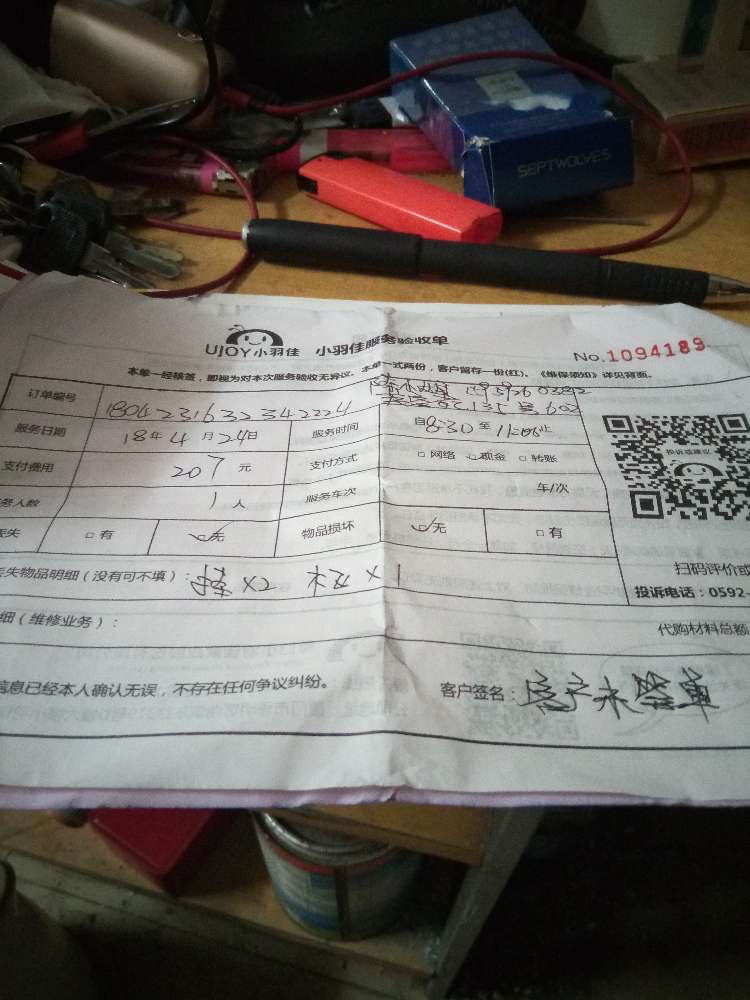 SEPTWOLVES
UJOY小羽佳 小羽佳服务验收单 No.1094189
本单一经核签，即视为对本次服务验收无异议。本单一式两份，客户留存一份(红)。《维保须知》详见背面。
订单编号 1804231632342224
135号602
服务日期 18年4月24日 服务时间 自8:30至 止
支付费用 207元 支付方式 □网络 现金 □转账
务人数 1人 服务车次 车/次
丢失 □有 无 物品损坏 无 □有
投诉或建议
丢失物品明细（没有可不填）： X2 X1
扫码评价或
投诉电话：0592-
细（维修业务）： 代购材料总额
信息已经本人确认无误，不存在任何争议纠纷。 客户签名：客户未签单